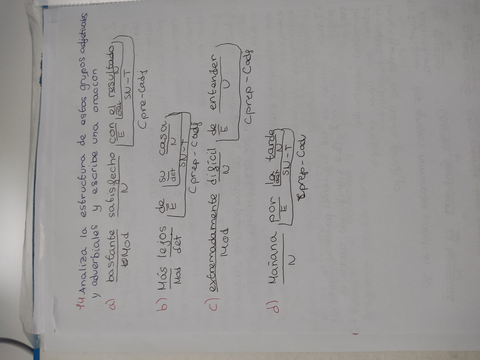 14. Analiza la estructura de estos grupos adjetivales
y adverbiales y escribe una oración
a) bastante satisfecho con el resultado
Mod N E det N
SN-T
Cpre-Cadj
b) Más lejos de su casa
Mod det E det N
SN-T
Cprep-Cadj
c) extremadamente difícil de entender
Mod N E
Cprep-Cadj
d) Mañana por la tarde
N E det N
SN-T
Cprep-Cadv